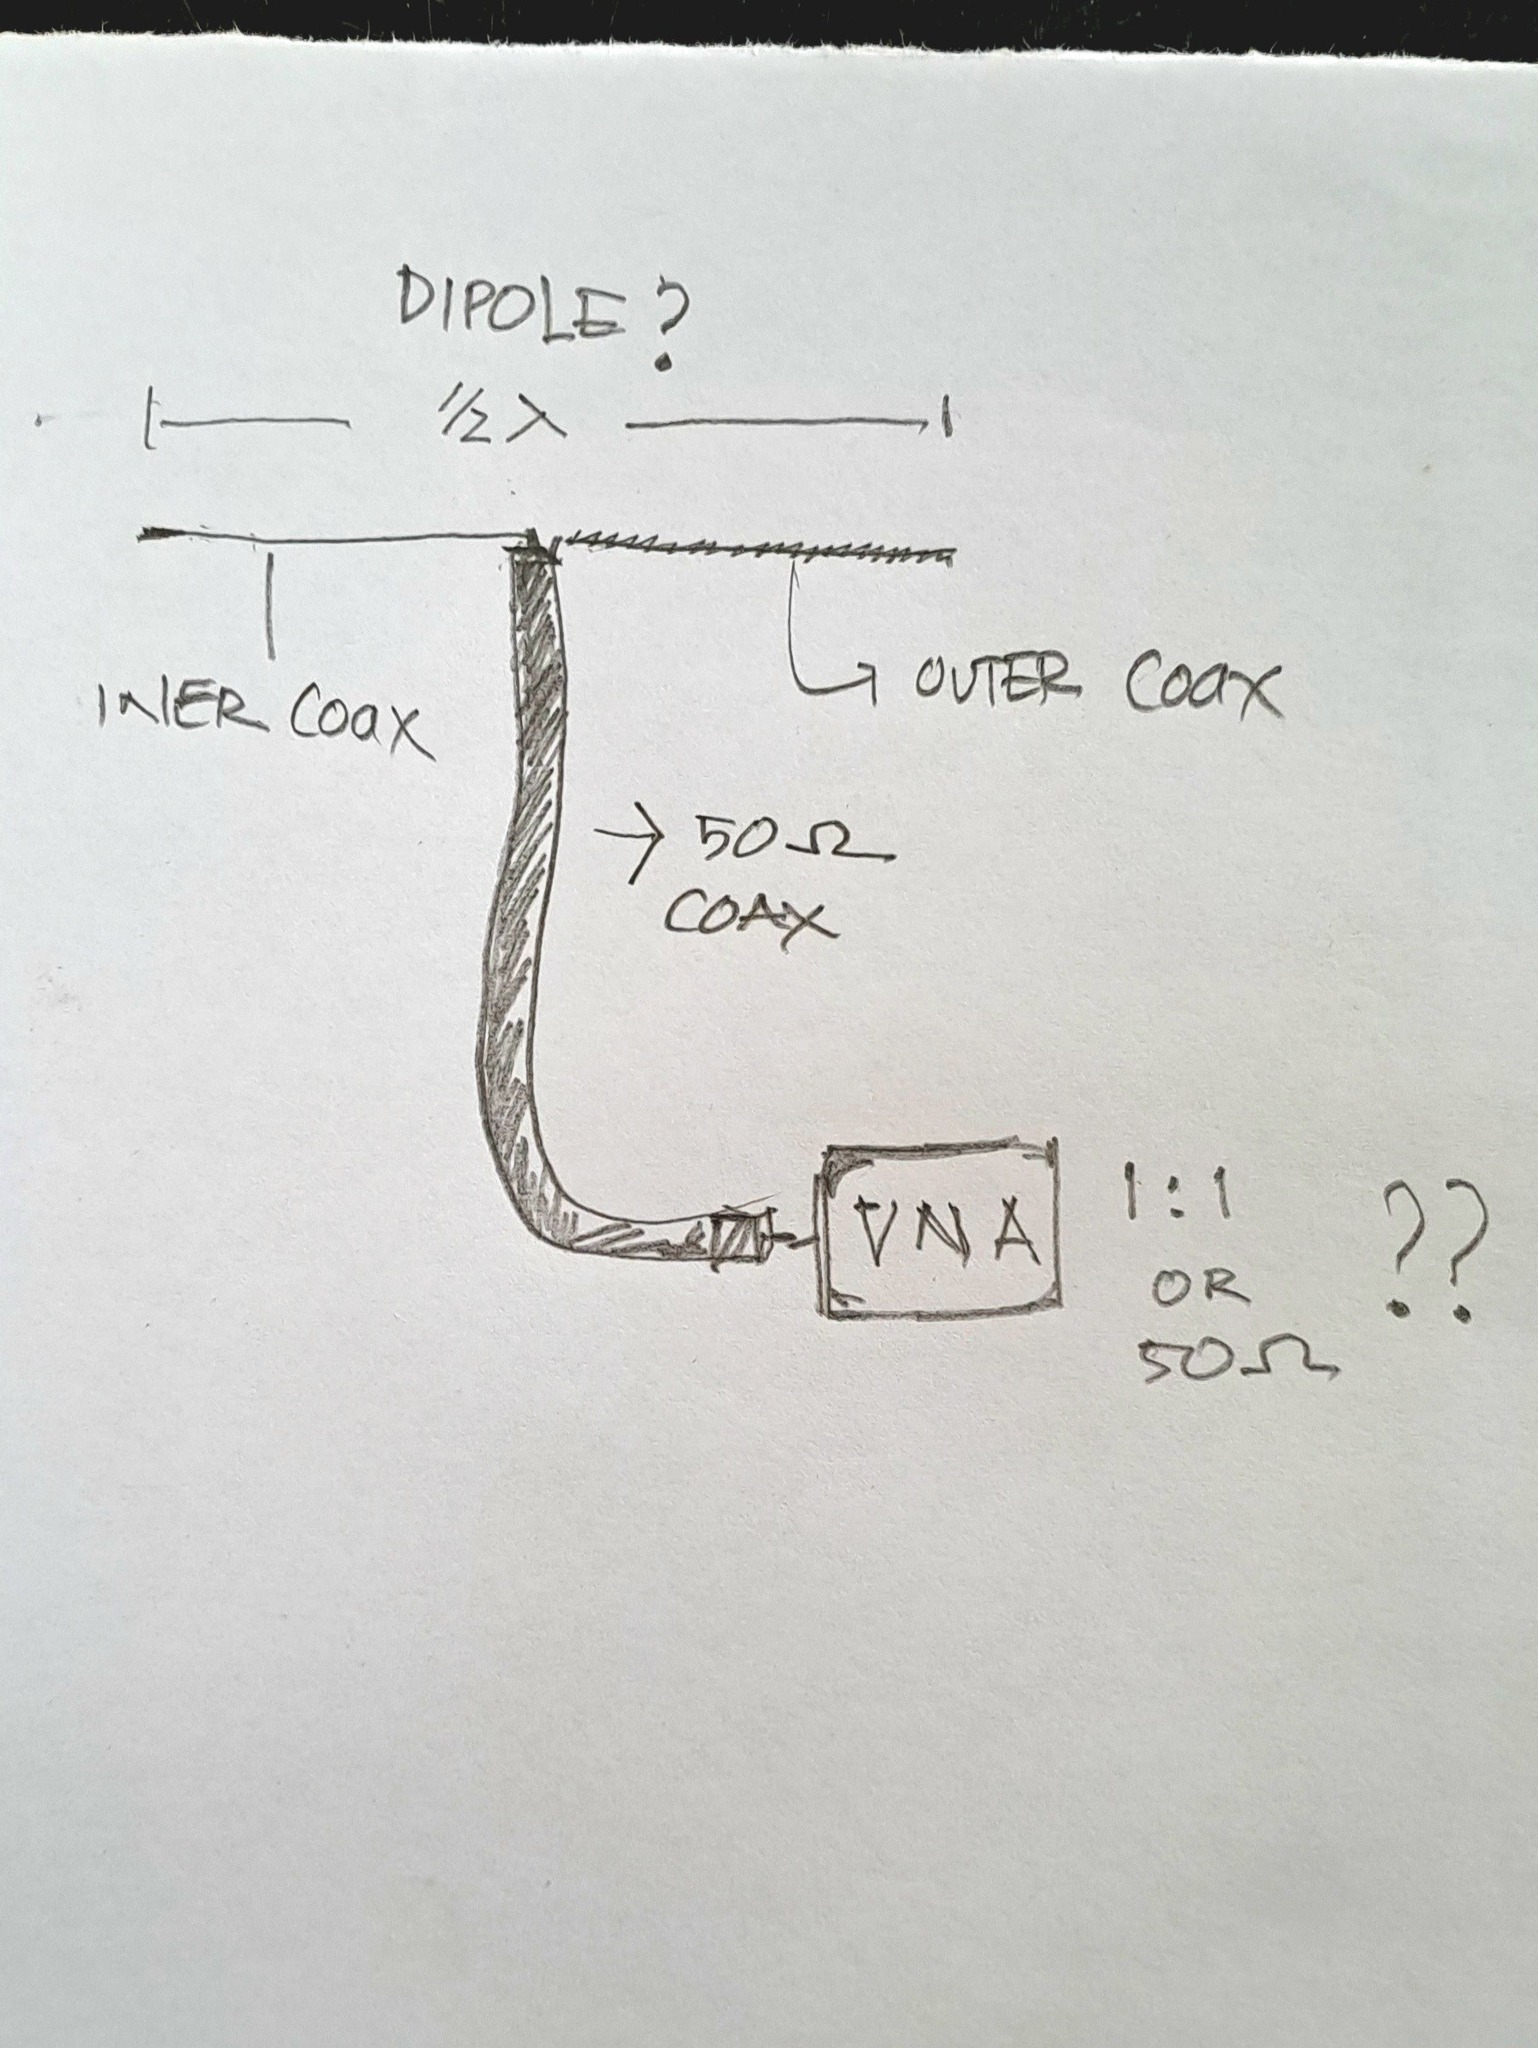 DIPOLE?
1/2 λ
INER COAX
OUTER COAX
→ 50Ω
COAX
VNA
1:1
OR
50Ω
??